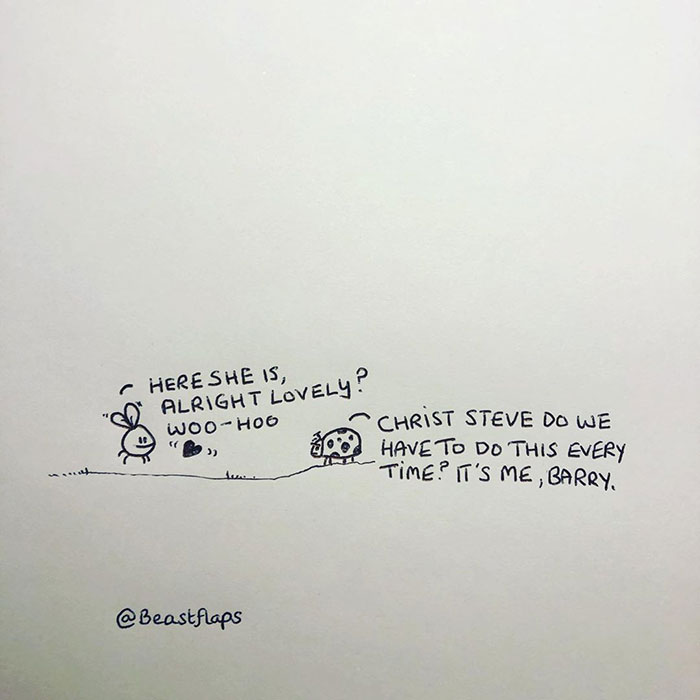 HERE SHE IS,
ALRIGHT LOVELY?
WOO-HOO
CHRIST STEVE DO WE
HAVE TO DO THIS EVERY
TIME? IT'S ME, BARRY.
@Beastflaps